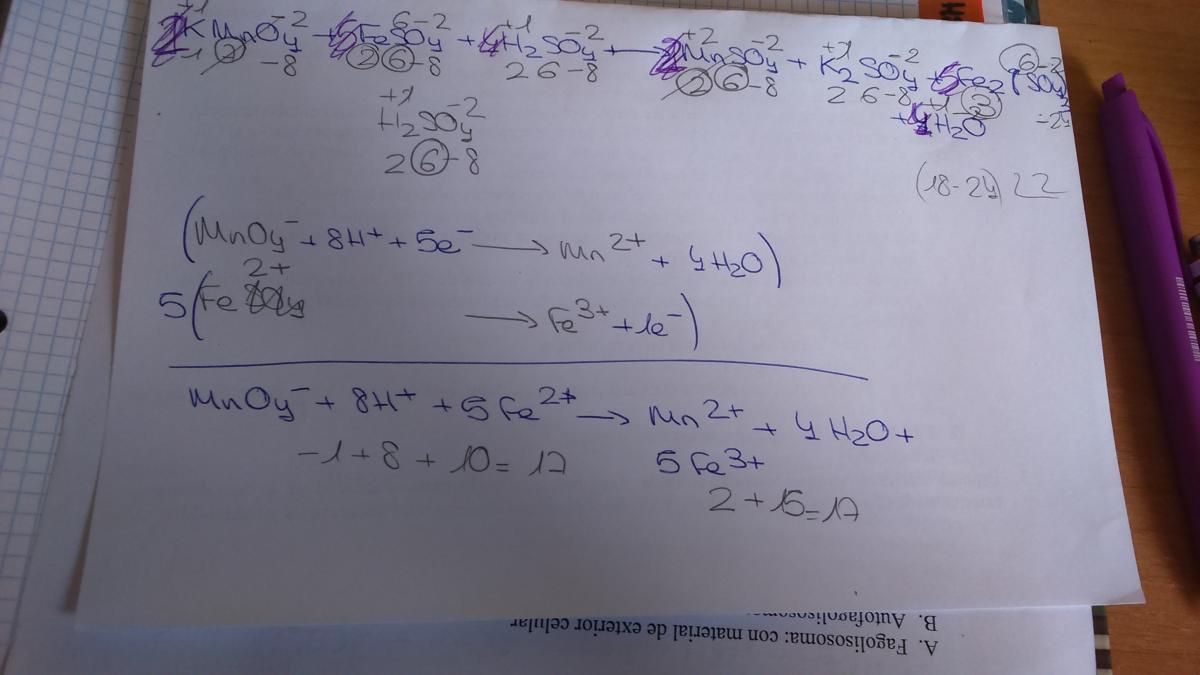 +1 -2 6 -2 +1 -2 +2 -2 +1 -2 6 -2
2KMnO4 + 5FeSO4 + 4H2SO4 + → 2MnSO4 + K2SO4 + 5Fe2(SO4
-1 7 -8 2 6 -8 2 6 -8 2 6 -8 2 6 -8 +1 3 -2 = 24
+ 4H2O
+1 -2
H2SO4
2 6 -8
(18-24)
(MnO4⁻ + 8H⁺ + 5e⁻ → Mn²⁺ + 4H2O)
5(Fe²⁺ → Fe³⁺ + 1e⁻)
MnO4⁻ + 8H⁺ + 5Fe²⁺ → Mn²⁺ + 4H2O +
-1 + 8 + 10 = 17 5Fe³⁺
2 + 15 = 17
B. Autofagolisosoma:
A. Fagolisosoma: con material de exterior celular